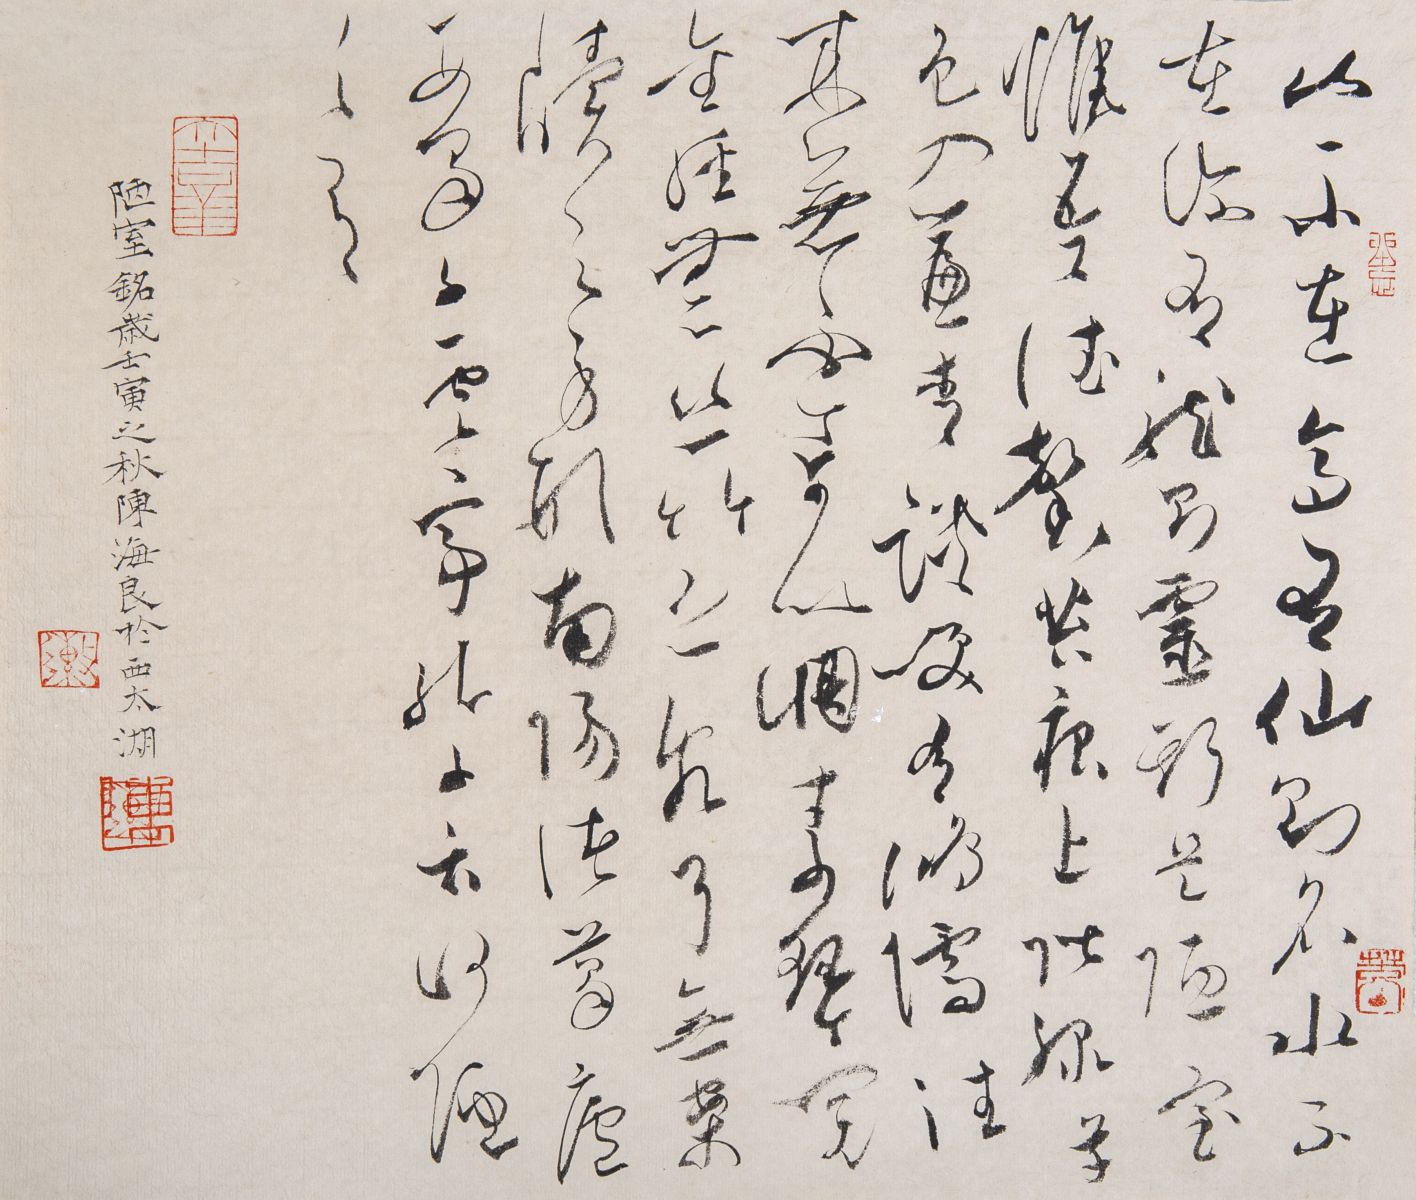 山不在高有仙則名水不
在深有龍則靈斯是陋室
惟吾德馨苔痕上階綠草
色入簾青談笑有鴻儒往
來無白丁可以調素琴閱
金經無絲竹之亂耳無案
牘之勞形南陽諸葛廬
西蜀子雲亭孔子云何陋
之有
陋室銘歲壬寅之秋陳海良於西太湖
陳